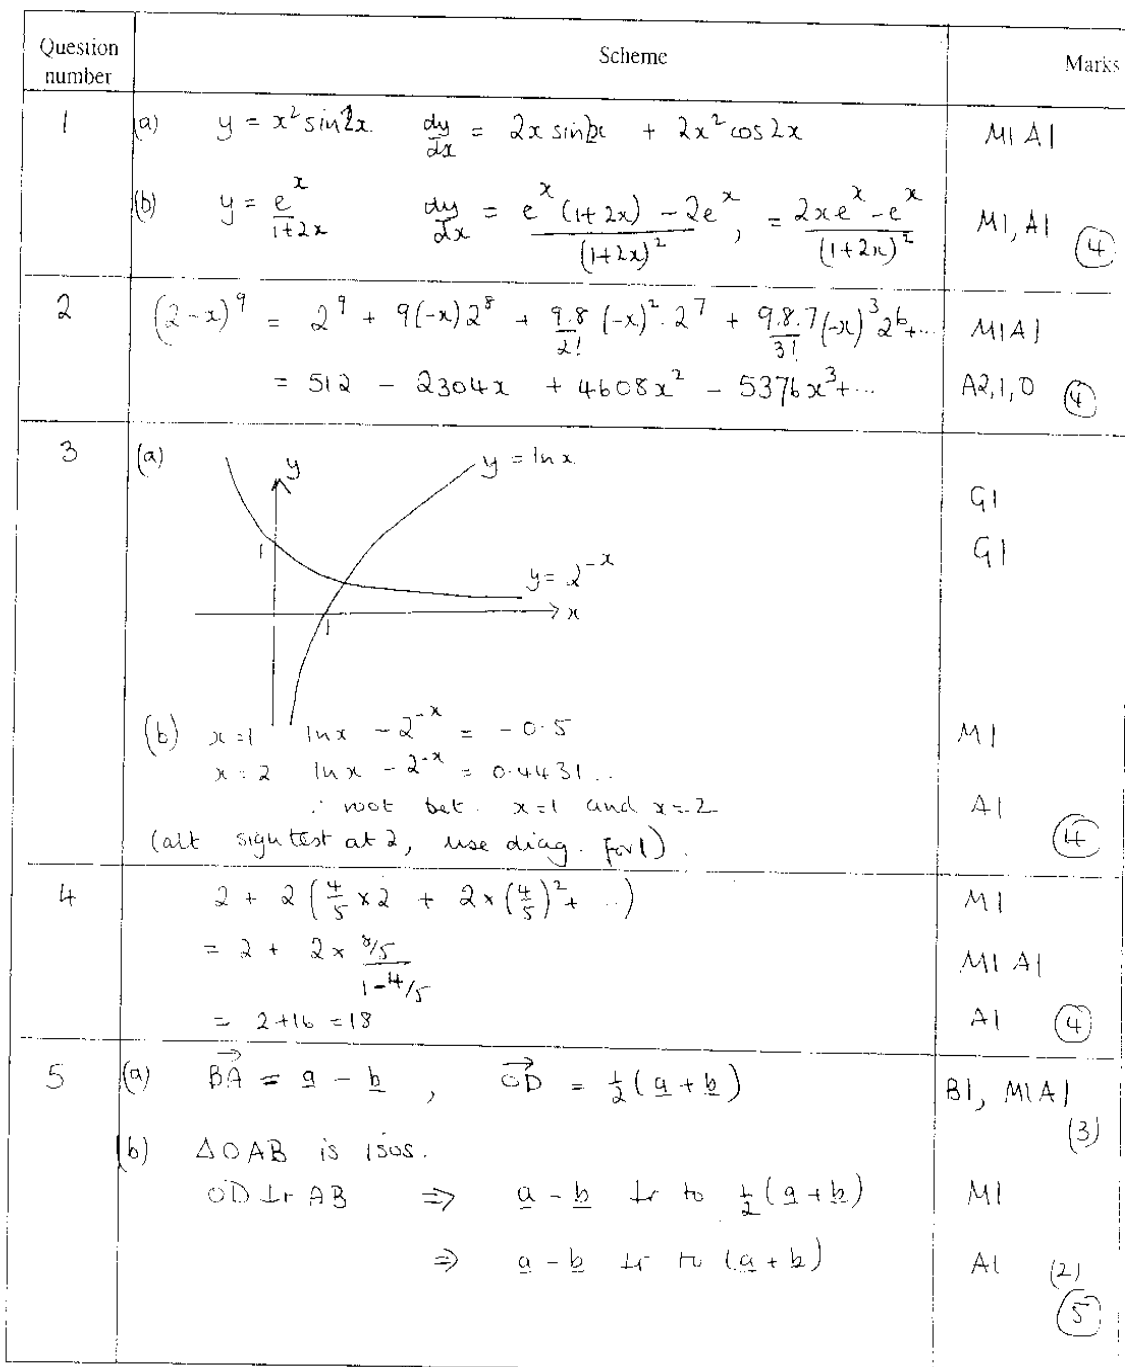 Question number Scheme Marks
1 (a) y = x² sin2x. dy/dx = 2x sin2x + 2x² cos2x M1 A1
(b) y = e^x/(1+2x) dy/dx = (e^x(1+2x) - 2e^x)/(1+2x)², = (2xe^x - e^x)/(1+2x)² M1, A1 (4)
2 (2-x)⁹ = 2⁹ + 9(-x)2⁸ + 9.8/2! (-x)².2⁷ + 9.8.7/3! (-x)³2⁶+... M1A1
= 512 - 2304x + 4608x² - 5376x³+... A2,1,0 (4)
3 (a) y y = ln x G1
1 G1
y = 2^-x
x
1
(b) x=1 ln x - 2^-x = -0.5 M1
x=2 ln x - 2^-x = 0.4431..
∴ root bet. x=1 and x=2 A1
(alt sign test at 2, use diag. for 1). (4)
4 2 + 2(4/5 × 2 + 2×(4/5)² + ..) M1
= 2 + 2 × (8/5)/(1-4/5) M1 A1
= 2+16 = 18 A1 (4)
5 (a) BA→ = a - b, OD→ = ½(a + b) B1, M1A1
(3)
(b) ΔOAB is isos.
OD ⊥r AB ⇒ a - b ⊥r to ½(a + b) M1
⇒ a - b ⊥r to (a + b) A1 (2)
(5)